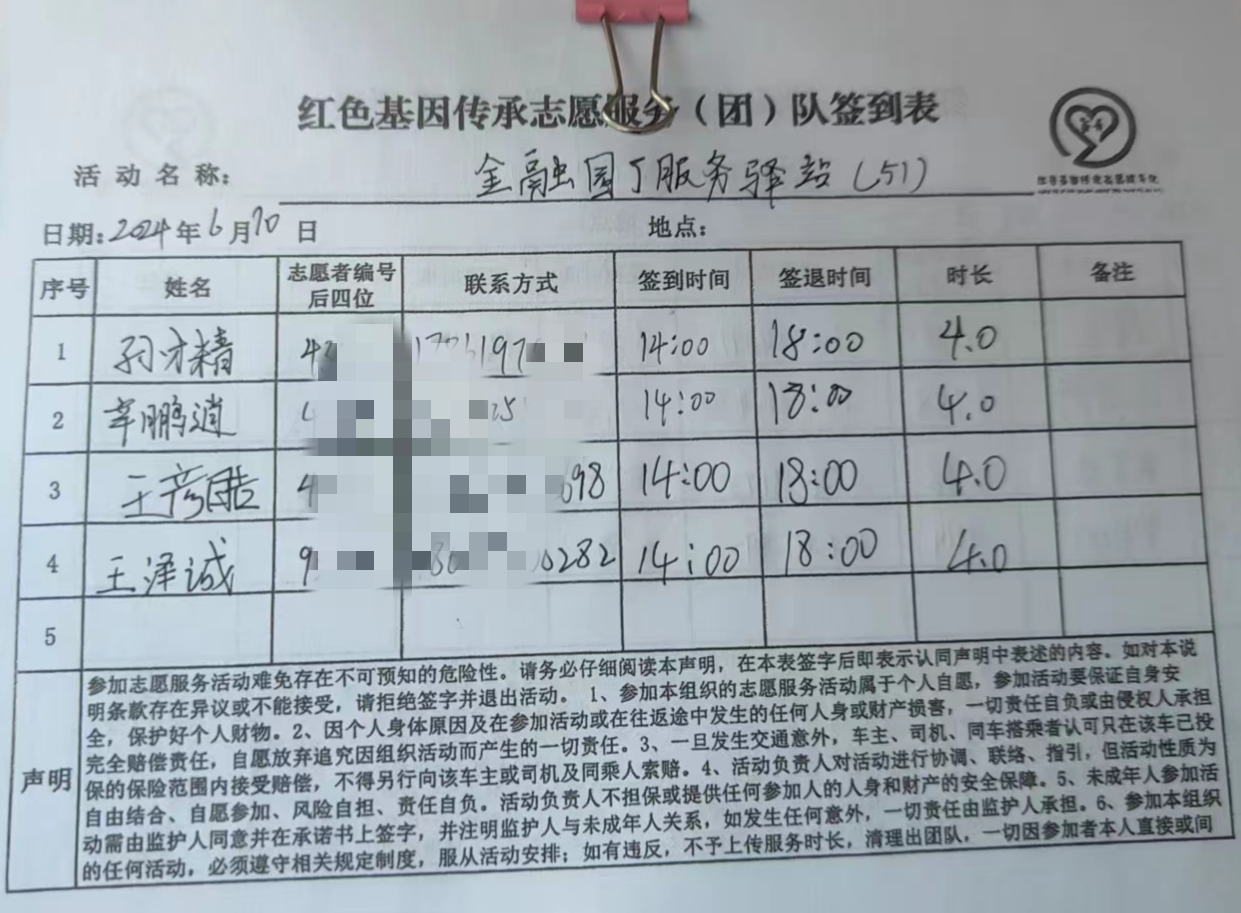 红色基因传承志愿服务（团）队签到表
活动名称： 金融园丁服务驿站（51）
日期：2024年6月10日 地点：
序号 姓名 志愿者编号后四位 联系方式 签到时间 签退时间 时长 备注
1 孙才精 14:00 18:00 4.0
2 辛鹏逍 14:00 18:00 4.0
3 王彦 698 14:00 18:00 4.0
4 王泽诚 9 0282 14:00 18:00 4.0
5
声明
参加志愿服务活动难免存在不可预知的危险性。请务必仔细阅读本声明，在本表签字后即表示认同声明中表述的内容。如对本说
明条款存在异议或不能接受，请拒绝签字并退出活动。1、参加本组织的志愿服务活动属于个人自愿，参加活动要保证自身安
全，保护好个人财物。2、因个人身体原因及在参加活动或在往返途中发生的任何人身或财产损害，一切责任自负或由侵权人承担
完全赔偿责任，自愿放弃追究因组织活动而产生的一切责任。3、一旦发生交通意外，车主、司机、同车搭乘者认可只在该车已投
保的保险范围内接受赔偿，不得另行向该车主或司机及同乘人索赔。4、活动负责人对活动进行协调、联络、指引，但活动性质为
自由结合、自愿参加、风险自担、责任自负。活动负责人不担保或提供任何参加人的人身和财产的安全保障。5、未成年人参加活
动需由监护人同意并在承诺书上签字，并注明监护人与未成年人关系，如发生任何意外，一切责任由监护人承担。6、参加本组织
的任何活动，必须遵守相关规定制度，服从活动安排；如有违反，不予上传服务时长，清理出团队，一切因参加者本人直接或间